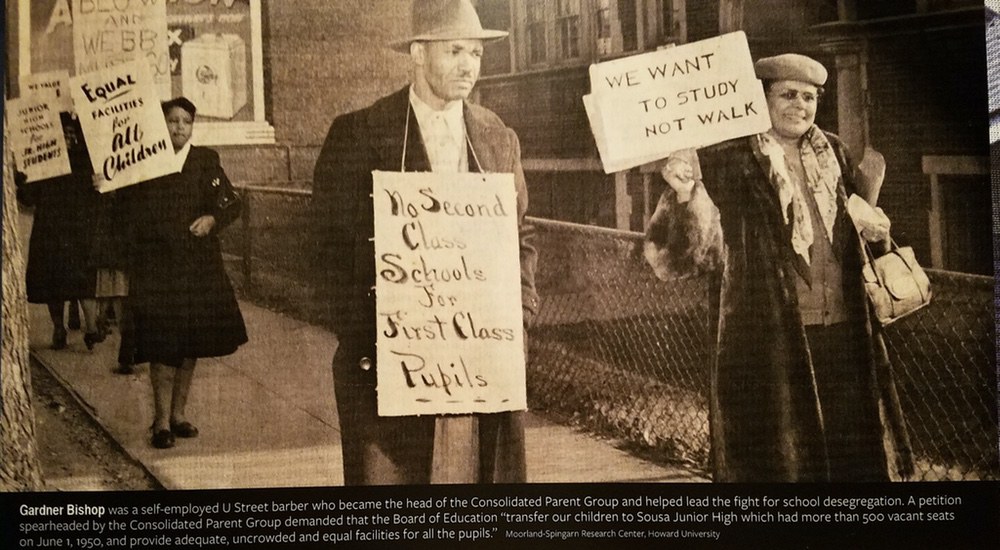 BLOW
AND
WEBB
WE
JUNIOR
HIGH
SCHOOLS
for
JR. HIGH
STUDENTS
EQUAL
FACILITIES
for
All
Children
No Second
Class
Schools
For
First Class
Pupils
WE WANT
TO STUDY
NOT WALK
Gardner Bishop was a self-employed U Street barber who became the head of the Consolidated Parent Group and helped lead the fight for school desegregation. A petition
spearheaded by the Consolidated Parent Group demanded that the Board of Education “transfer our children to Sousa Junior High which had more than 500 vacant seats
on June 1, 1950, and provide adequate, uncrowded and equal facilities for all the pupils.” Moorland-Spingarn Research Center, Howard University